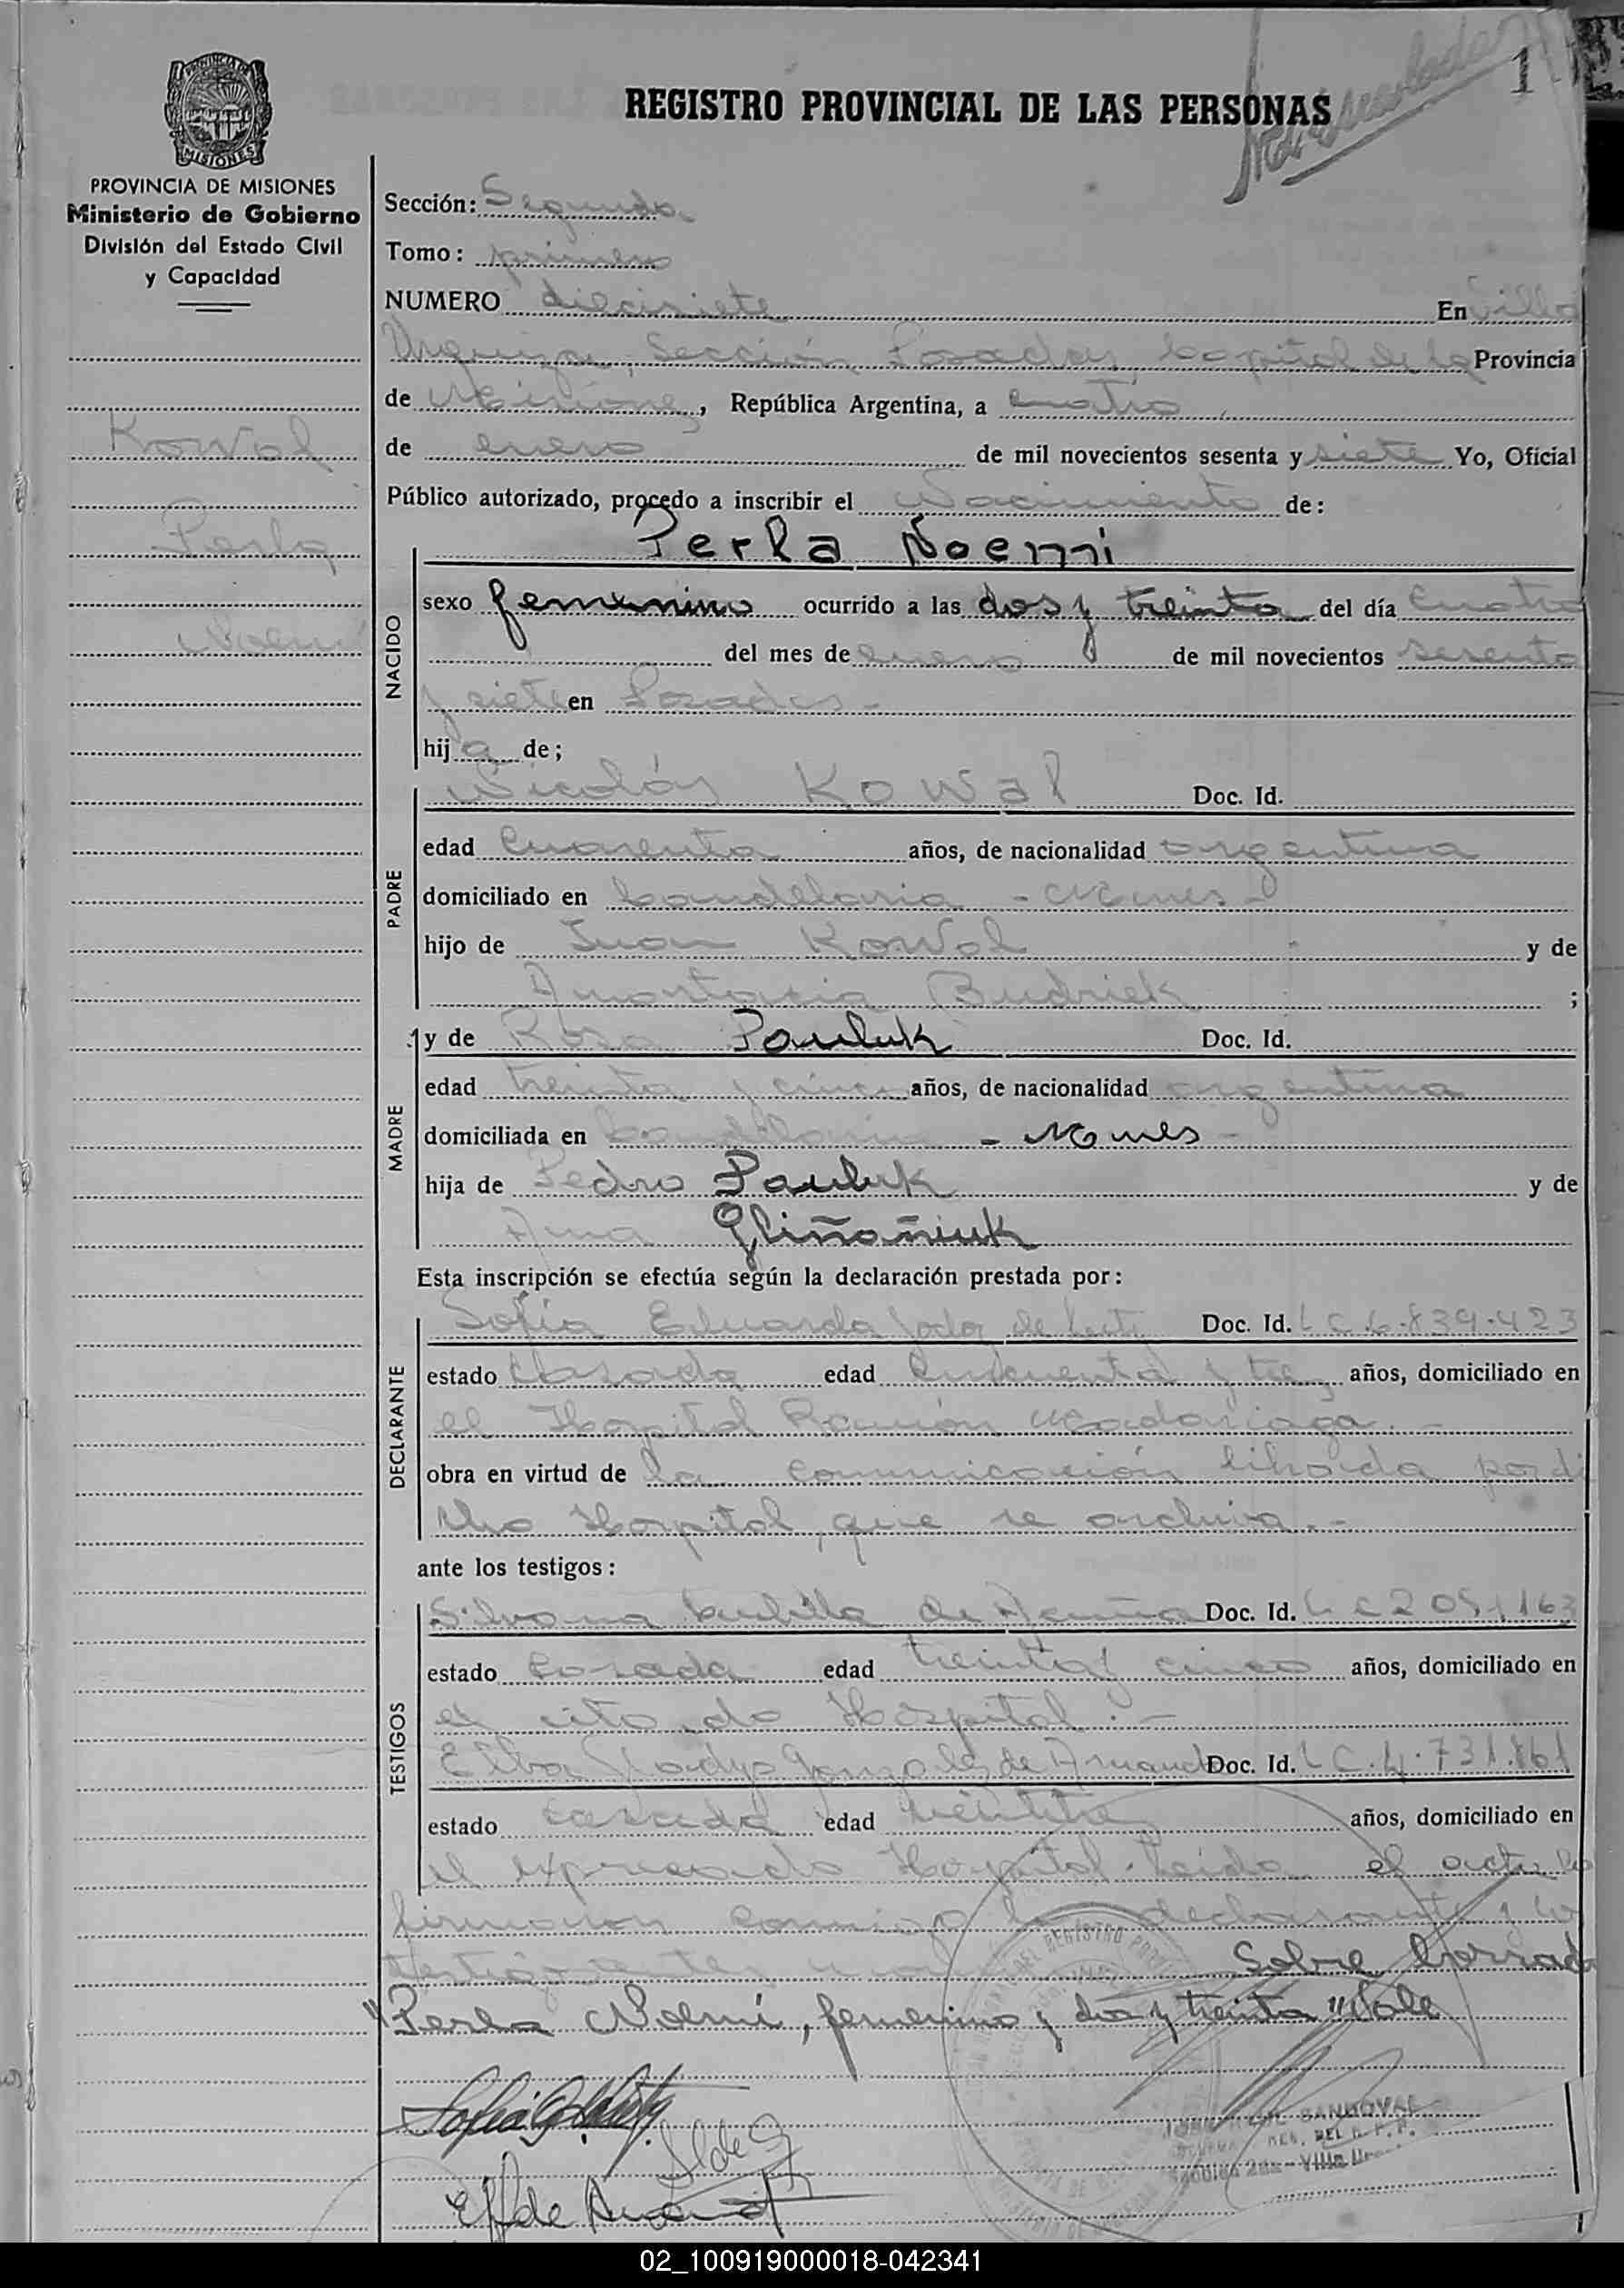 1
REGISTRO PROVINCIAL DE LAS PERSONAS
PROVINCIA DE MISIONES
Ministerio de Gobierno
División del Estado Civil
y Capacidad
Kowal
Perla
Noemí
Sección: Segunda
Tomo: primero
NUMERO diecisiete En Villa
Urquiza, Sección Posadas, Capital de la Provincia
de Misiones, República Argentina, a cuatro
de enero de mil novecientos sesenta y siete Yo, Oficial
Público autorizado, procedo a inscribir el Nacimiento de:
NACIDO
Perla Noemi
sexo femenino ocurrido a las dos y treinta del día cuatro
del mes de enero de mil novecientos sesenta
y siete en Posadas -
hija de;
PADRE
Nicolás Kowal Doc. Id.
edad Cuarenta años, de nacionalidad argentina
domiciliado en Candelaria - Mnes -
hijo de Juan Kowal y de
Budniek ;
MADRE
y de Rosa Pauluk Doc. Id.
edad treinta y cinco años, de nacionalidad argentina
domiciliada en Candelaria - Mnes -
hija de Pedro Pauluk y de
Ana Gliñañiuk
Esta inscripción se efectúa según la declaración prestada por:
DECLARANTE
Sofía Eduarda de Doc. Id. L C 6.839.423
estado Casada edad Cincuenta y tres años, domiciliado en
el Hospital Ramón Madariaga. -
obra en virtud de la comunicación librada por di
cho Hospital, que se archiva. -
ante los testigos:
TESTIGOS
Silvana de Acuña Doc. Id. L C 2 051163
estado Casada edad treinta y cinco años, domiciliado en
el citado Hospital. -
Elba Gladys Gonzalez de Doc. Id. L C. 4.731.161
estado casada edad años, domiciliado en
el expresado Hospital. Leída el acta la
firmaron conmigo la declarante y los
testigos Sobre borrado
"Perla Noemí, femenino y dos y treinta" Vale
SANDOVAL
02_100919000018-042341